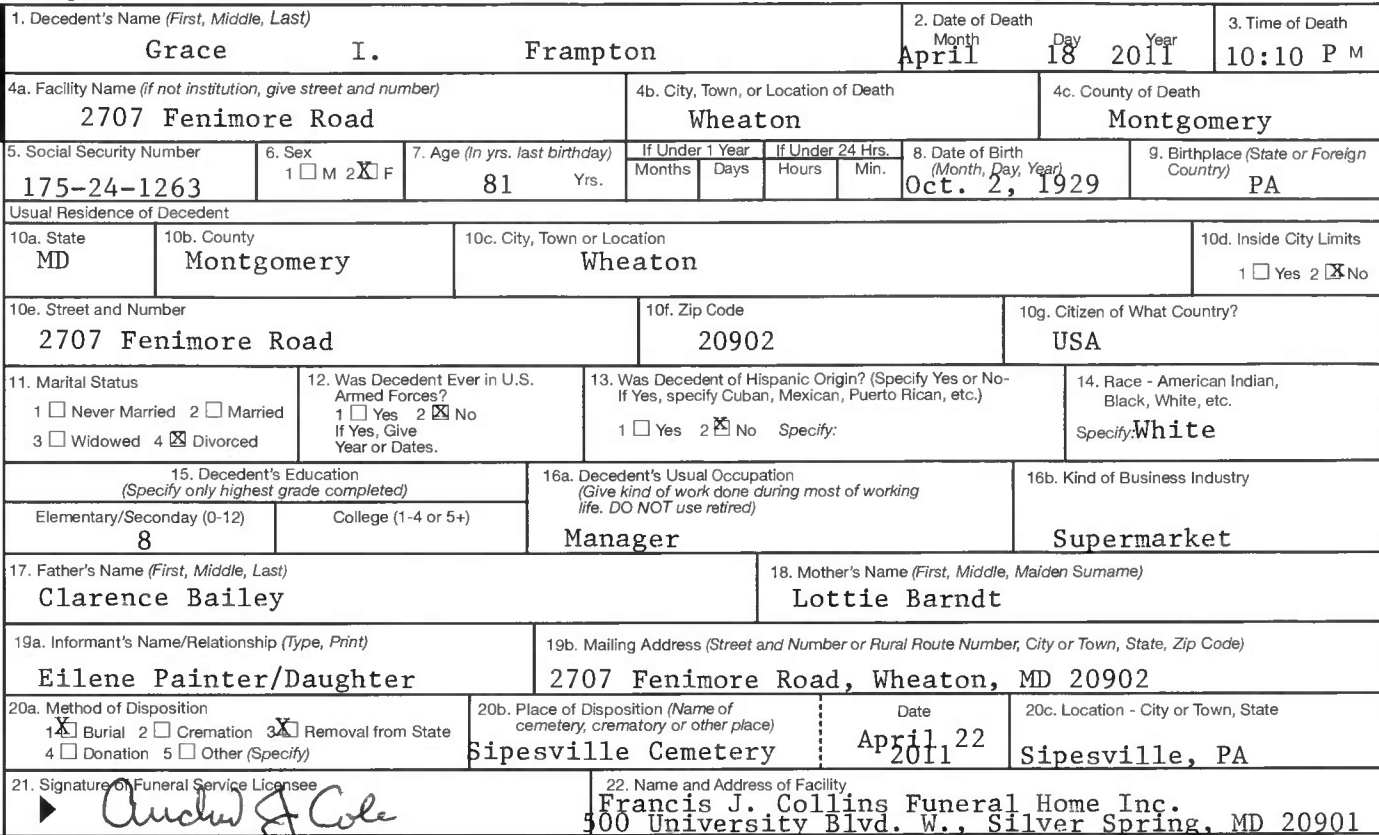 1. Decedent's Name (First, Middle, Last)
Grace I. Frampton
2. Date of Death
Month Day Year
April 18 2011
3. Time of Death
10:10 P M
4a. Facility Name (if not institution, give street and number)
2707 Fenimore Road
4b. City, Town, or Location of Death
Wheaton
4c. County of Death
Montgomery
5. Social Security Number
175-24-1263
6. Sex
1 ☐ M 2 ☒ F
7. Age (In yrs. last birthday)
81 Yrs.
If Under 1 Year
Months Days
If Under 24 Hrs.
Hours Min.
8. Date of Birth
(Month, Day, Year)
Oct. 2, 1929
9. Birthplace (State or Foreign
Country)
PA
Usual Residence of Decedent
10a. State
MD
10b. County
Montgomery
10c. City, Town or Location
Wheaton
10d. Inside City Limits
1 ☐ Yes 2 ☒ No
10e. Street and Number
2707 Fenimore Road
10f. Zip Code
20902
10g. Citizen of What Country?
USA
11. Marital Status
1 ☐ Never Married 2 ☐ Married
3 ☐ Widowed 4 ☒ Divorced
12. Was Decedent Ever in U.S.
Armed Forces?
1 ☐ Yes 2 ☒ No
If Yes, Give
Year or Dates.
13. Was Decedent of Hispanic Origin? (Specify Yes or No-
If Yes, specify Cuban, Mexican, Puerto Rican, etc.)
1 ☐ Yes 2 ☒ No Specify:
14. Race - American Indian,
Black, White, etc.
Specify: White
15. Decedent's Education
(Specify only highest grade completed)
Elementary/Seconday (0-12)
8
College (1-4 or 5+)
16a. Decedent's Usual Occupation
(Give kind of work done during most of working
life. DO NOT use retired)
Manager
16b. Kind of Business Industry
Supermarket
17. Father's Name (First, Middle, Last)
Clarence Bailey
18. Mother's Name (First, Middle, Maiden Surname)
Lottie Barndt
19a. Informant's Name/Relationship (Type, Print)
Eilene Painter/Daughter
19b. Mailing Address (Street and Number or Rural Route Number, City or Town, State, Zip Code)
2707 Fenimore Road, Wheaton, MD 20902
20a. Method of Disposition
1 ☒ Burial 2 ☐ Cremation 3 ☒ Removal from State
4 ☐ Donation 5 ☐ Other (Specify)
20b. Place of Disposition (Name of
cemetery, crematory or other place)
Sipesville Cemetery
Date
April 22
2011
20c. Location - City or Town, State
Sipesville, PA
21. Signature of Funeral Service Licensee
J Cole
22. Name and Address of Facility
Francis J. Collins Funeral Home Inc.
500 University Blvd. W., Silver Spring, MD 20901